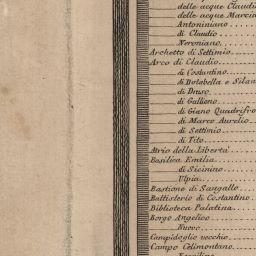 delle acque Claudi
delle acque Marcia
Antoniniano
di Claudio
Neroniano
Archetto di Settimio
Arco di Claudio
di Costantino
di Dolabella e Silan
di Druso
di Gallieno
di Giano Quadrifro
di Marco Aurelio
di Settimio
di Tito
Atrio della Libertà
Basilica Emilia
di Sicinino
Ulpia
Bastione di Sangallo
Battisterio di Costantino
Biblioteca Palatina
Borgo Angelico
Nuovo
Campidoglio vecchio
Campo Celimontano